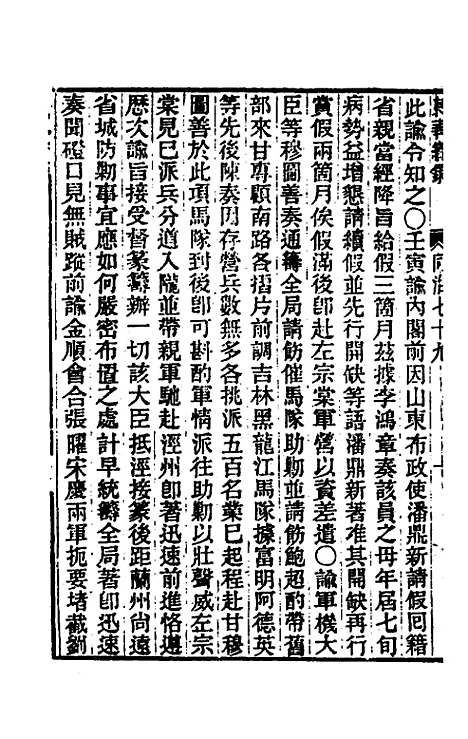 同治七十九
此諭令知之〇壬寅諭內閣前因山東布政使潘鼎新請假回籍
省親當經降旨給假三箇月茲據李鴻章奏該員之母年屆七旬
病勢益增懇請續假並先行開缺等語潘鼎新著准其開缺再行
賞假兩箇月俟假滿後卽赴左宗棠軍營以資差遣〇諭軍機大
臣等穆圖善奏通籌全局請飭催馬隊助勦並請飭鮑超酌帶舊
部來甘專顧南路各摺片前調吉林黑龍江馬隊據富明阿德英
等先後陳奏因存營兵數無多各挑派五百名業已起程赴甘穆
圖善於此項馬隊到後卽可斟酌軍情派往助勦以壯聲威左宗
棠見已派兵分道入隴並帶親軍馳赴涇州卽著迅速前進恪遵
歷次諭旨接受督篆籌辦一切該大臣抵涇接篆後距蘭州尚遠
省城防勦事宜應如何嚴密布置之處計早統籌全局著卽迅速
奏聞磴口見無賊蹤前諭金順會合張曜宋慶兩軍扼要堵截劉